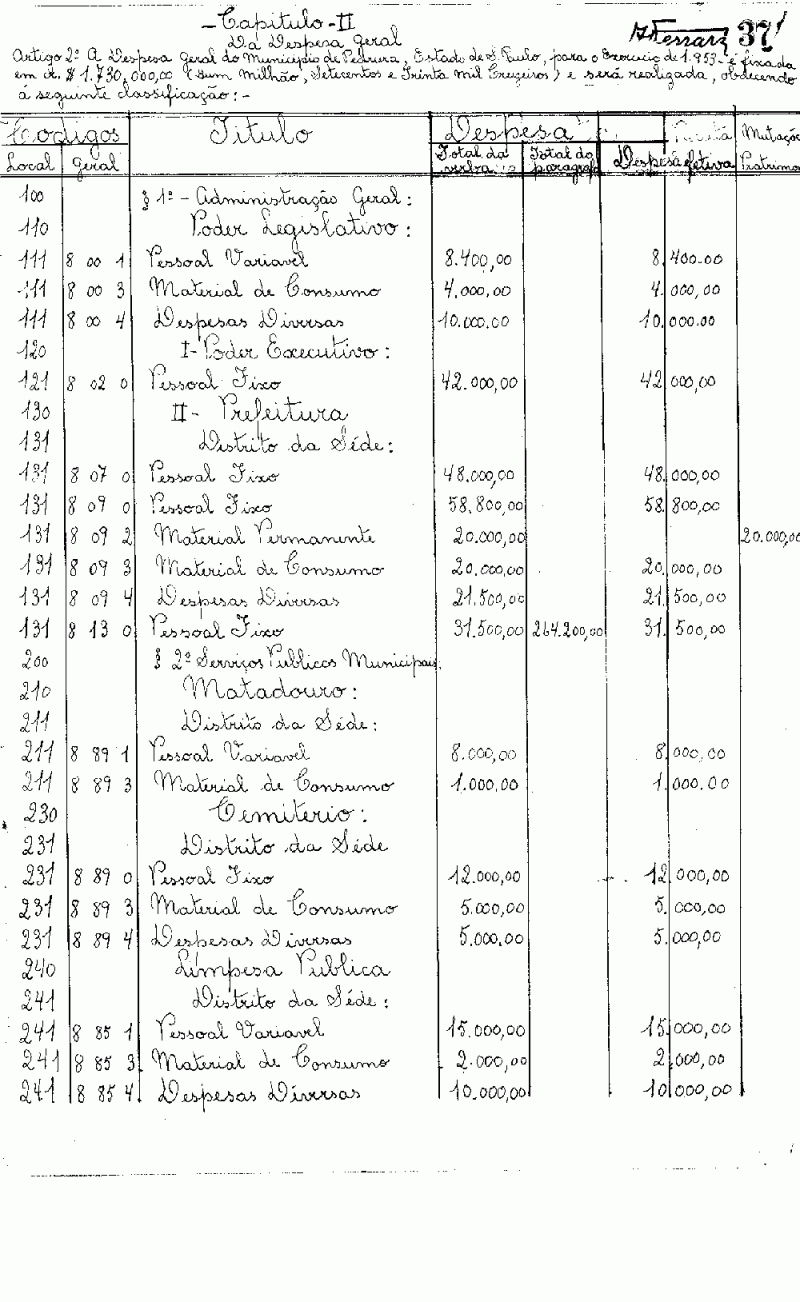 -Capitulo-II
Da Despesa Geral
37
Artigo 2º A Despesa Geral do Municipio de Pedreira, Estado de S. Paulo, para o Exercicio de 1.953- é fixada
em Cr. $ 1.730.000,00 (Hum Milhão, Setecentos e Trinta Mil Cruzeiros) e será realizada, obdecendo
á seguinte classificação:-
Codigos Titulo Despesa Mutaçõe
Local Geral Total da verba Total do paragrafo Despesa efetiva Patrimo
100 § 1º - Administração Geral:
110 Poder Legislativo:
111 8 00 1 Pessoal Variavel 8.400,00 8.400.00
111 8 00 3 Material de Consumo 4.000,00 4.000,00
111 8 00 4 Despesas Diversas 10.000.00 10.000.00
120 I-Poder Executivo:
121 8 02 0 Pessoal Fixo 42.000,00 42 000,00
130 II- Prefeitura
131 Distrito da Séde:
131 8 07 0 Pessoal Fixo 48.000,00 48.000,00
131 8 09 0 Pessoal Fixo 58.800,00 58.800,00
131 8 09 2 Material Permanente 20.000,00 20.000,00
131 8 09 3 Material de Consumo 20.000,00 20.000,00
131 8 09 4 Despesas Diversas 21.500,00 21.500,00
131 8 13 0 Pessoal Fixo 31.500,00 264.200,00 31.500,00
200 § 2º Serviços Publicos Municipais:
210 Matadouro:
211 Distrito da Séde:
211 8 89 1 Pessoal Variavel 8.000,00 8.000,00
211 8 89 3 Material de Consumo 1.000,00 1.000.00
230 Cemiterio:
231 Distrito da Séde
231 8 89 0 Pessoal Fixo 12.000,00 12.000,00
231 8 89 3 Material de Consumo 5.000,00 5.000,00
231 8 89 4 Despesas Diversas 5.000,00 5.000,00
240 Limpesa Publica
241 Distrito da Séde:
241 8 85 1 Pessoal Variavel 15.000,00 15.000,00
241 8 85 3 Material de Consumo 2.000,00 2.000,00
241 8 85 4 Despesas Diversas 10.000,00 10.000,00